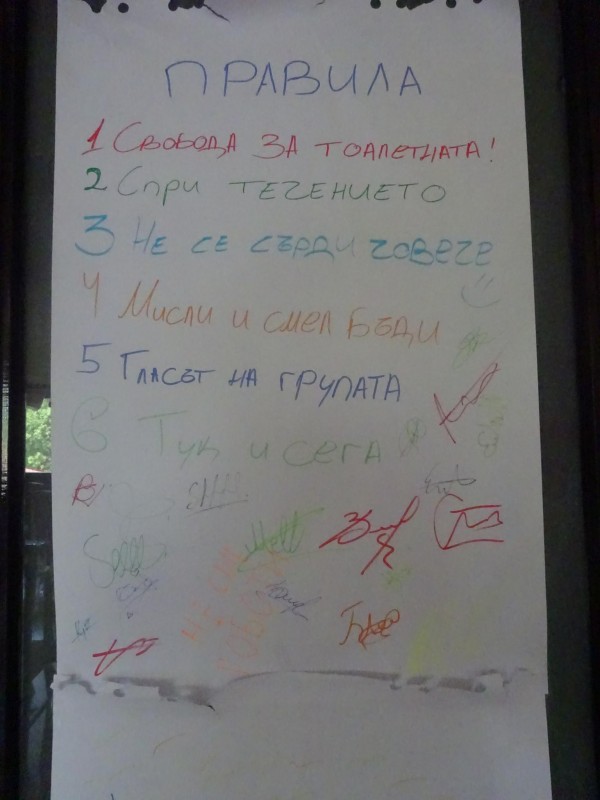 ПРАВИЛА
1 СВОБОДА ЗА ТОАЛЕТНАТА!
2 Спри ТЕЧЕНИЕТО
3 Не се сърди човече
4 Мисли и смел бъди
5 Гласът на групата
6 Тук и сега